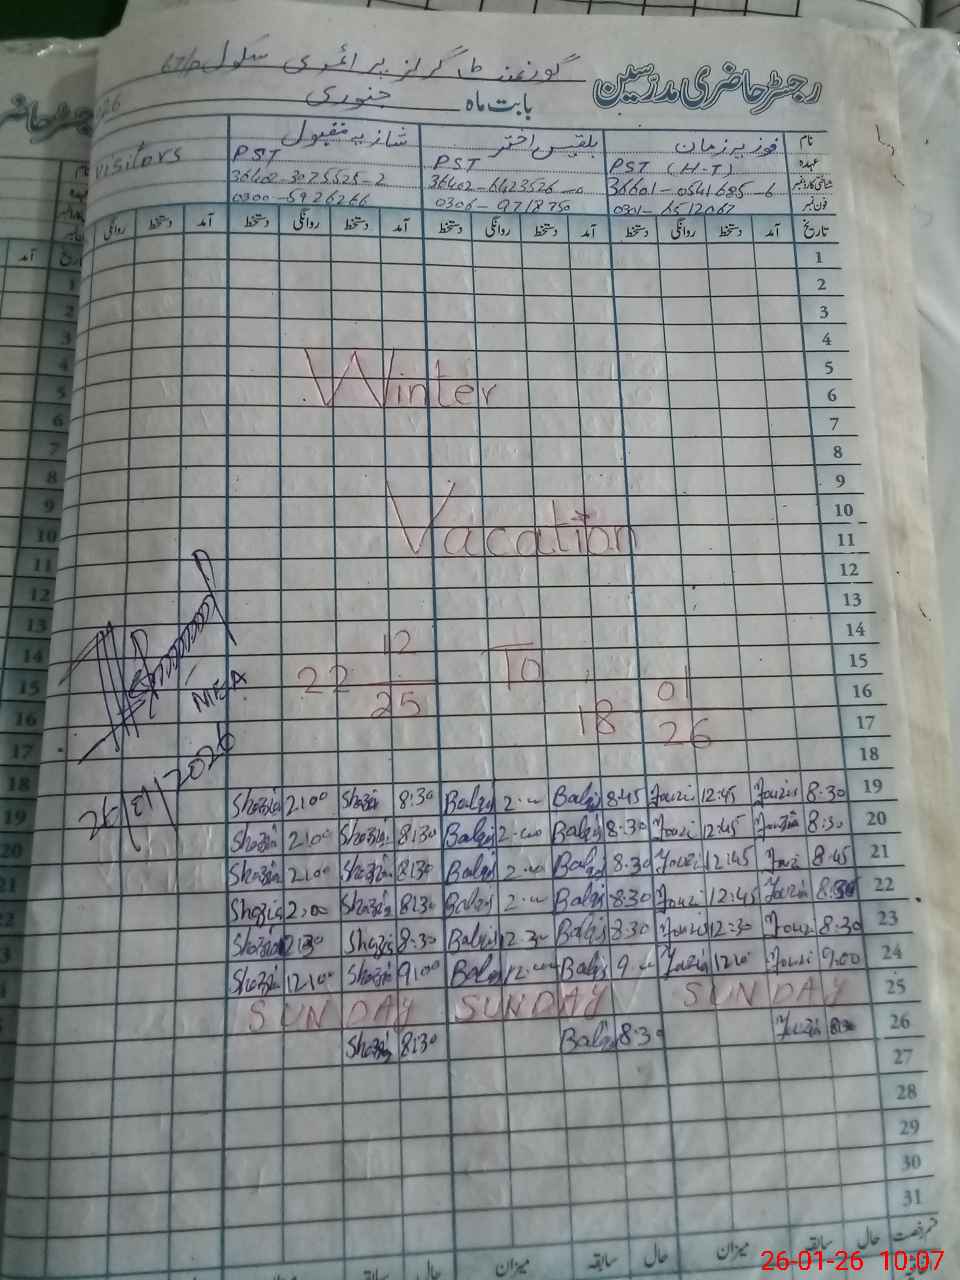 گورنمنٹ گرلز پرائمری سکول
رجسٹر حاضری مدرسین
بابت ماہ جنوری
نام فوزیہ زمان بلقیس اختر شازیہ مقبول visitors
عہدہ PST (H-T) PST PST
شناختی کارڈ نمبر 36601-0541685-6 36402-6423526-0 36402-3025525-2
فون نمبر 0301-6512067 0306-9718750 0300-5926266
تاریخ آمد دستخط روانگی دستخط آمد دستخط روانگی دستخط آمد دستخط روانگی دستخط آمد دستخط روانگی
1
2
3
4
5
Winter 6
7
8
9
10
Vacation 11
12
13
14
22 12/25 To 18 01/26
15
16
17
18
NIGA
26/01/2026
Shazia 2:00 Shazia 8:30 Balqis 2:00 Balqis 8:45 Fouzia 12:45 Fouzia 8:30 19
Shazia 2:00 Shazia 8:30 Balqis 2:00 Balqis 8:30 Fouzi 12:45 Fouzia 8:30 20
Shazia 2:00 Shazia 8:30 Balqis 2:00 Balqis 8:30 Fouzi 12:45 Fouzi 8:45 21
Shazia 2:00 Shazia 8:30 Balqis 2:00 Balqis 8:30 Fouzi 12:45 Fouzia 8:30 22
Shazia 12:30 Shazia 8:30 Balqis 12:30 Balqis 8:30 Fouzi 12:30 Fouzi 8:30 23
Shazia 12:00 Shazia 9:00 Balqis 12:00 Balqis 9:00 Fouzia 12:00 Fouzi 9:00 24
SUNDAY SUNDAY SUNDAY 25
Shazia 8:30 Balqis 8:30 Fouzia 8:30 26
27
28
29
30
31
قسم رخصت حال سابقہ میزان حال سابقہ میزان حال سابقہ
26-01-26 10:07